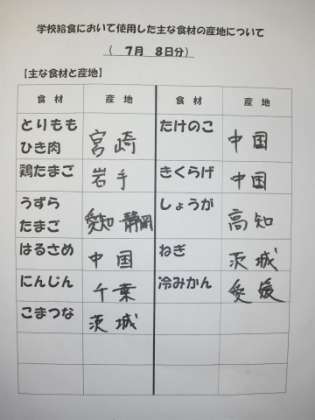 学校給食において使用した主な食材の産地について
( 7月 8日分)
【主な食材と産地】
食材 産地 食材 産地
とりもも
ひき肉 宮崎 たけのこ 中国
鶏たまご 岩手 きくらげ 中国
うずら
たまご 愛知 静岡 しょうが 高知
はるさめ 中国 ねぎ 茨城
にんじん 千葉 冷みかん 愛媛
こまつな 茨城